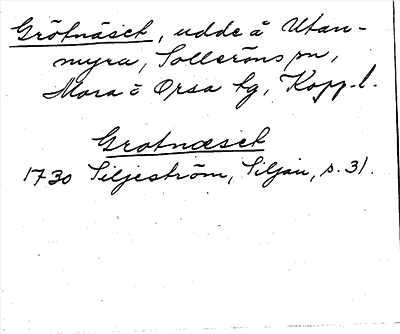 Grötnäset, udde å Utan-
myra, Solleröns sn,
Mora o Orsa tg, Kopp. l.
Grotnæset
1730 Siljeström, Siljan, s. 31.